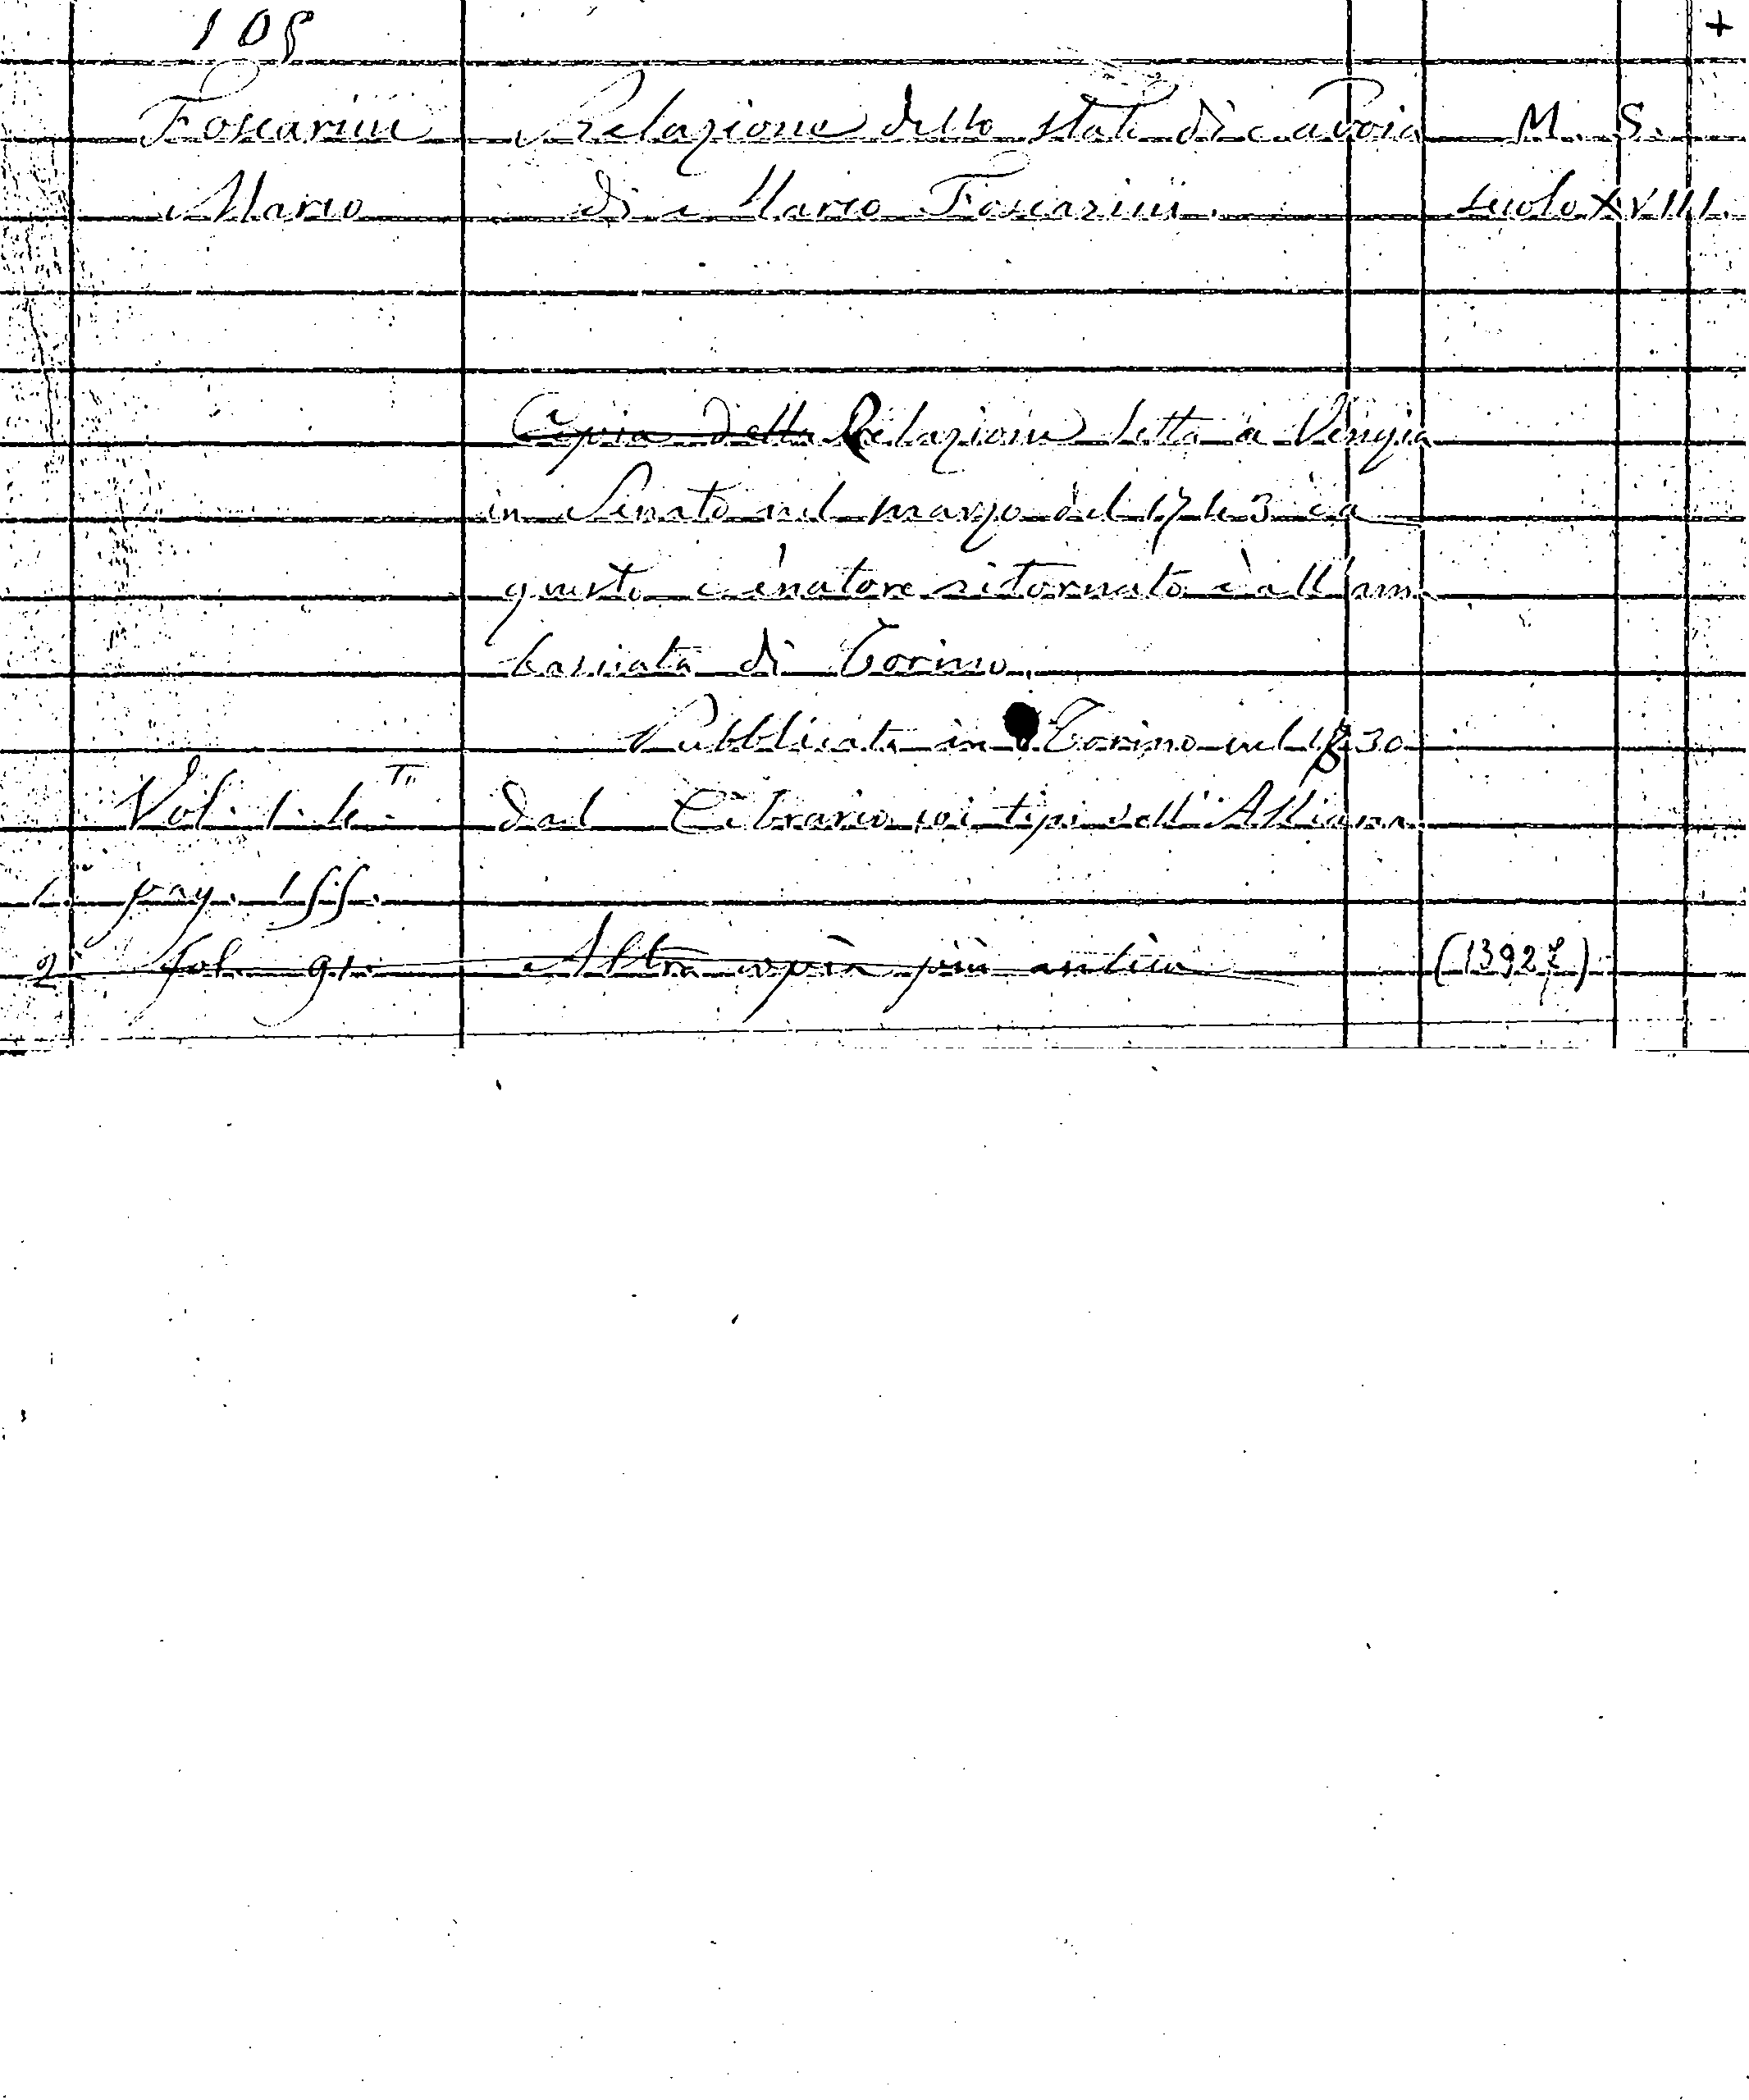 105 +
Foscarini Relazione dello stato di Savoia M. S.
Marco di Marco Foscarini. secolo XVIII.
Copia della Relazione letta a Venezia
in Senato nel marzo del 1743 da
questo Senatore ritornato dall'am-
basciata di Torino.
Pubblicata in Torino nel 1830
Vol. 1. 4.to dal Cibrario coi tipi dell'Alliana
1. pag. 155.
2. fol. 91. Altra copia più antica (13927)